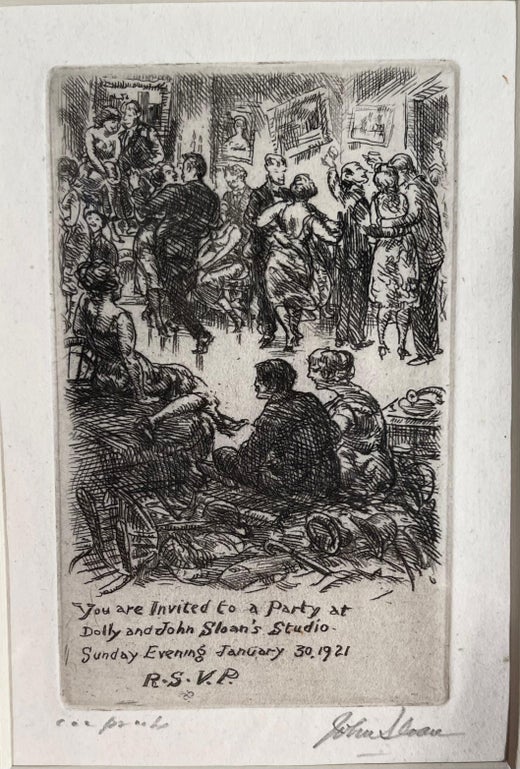 You are Invited to a Party at
Dolly and John Sloan's Studio-
Sunday Evening January 30, 1921
R.S.V.P.
100 proofs
John Sloan